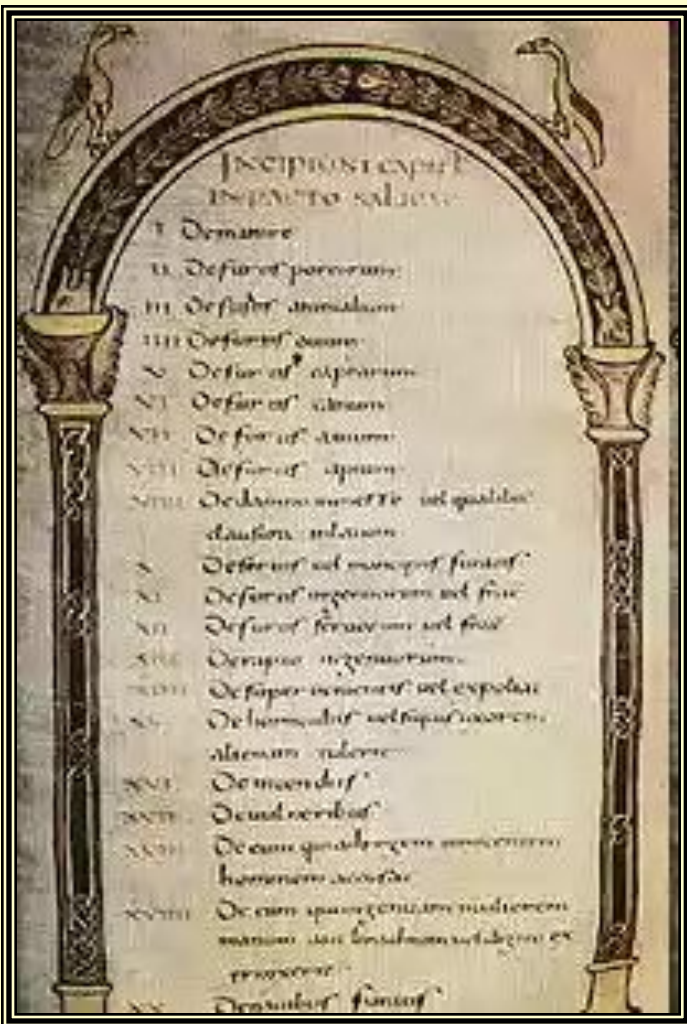 INCIPIUNT CAPITUL
IN PACTO SALICAE
I De mannire
II De furtis porcorum
III De furtis animalium
IIII De furtis ouium
V De furtis caprarum
VI De furtis canum
VII De furtis auium
VIII De furtis apium
VIIII De damno in messe uel qualibet
clausura
X De seruis uel mancipiis furatis
XI De furtis ingenuorum uel frac
XII De furtis seruorum uel frac
XIII De rapto ingenuorum
XIIII De super uenientis uel expoliat
XV De homicidiis uel si quis uxorem
alienam tulerit
XVI De incendiis
XVII De uulneribus
XVIII De eum qui ad regem innocentem
hominem accusat
XVIIII De eum qui ingenuam mulierem
manum uel brachium uel digito ex
XX De nauibus furatis